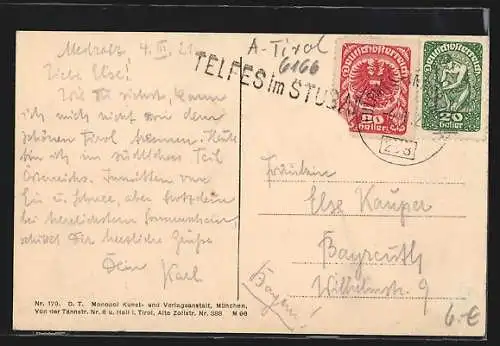 A-Tirol
6166
TELFES im STUBAI
Deutschösterreich
80
Heller
Deutschösterreich
20
Heller
Medratz 4. III. 21
Liebe Else!
Wie Du siehst, kann
ich mich nicht von dem
schönen Tirol trennen. Heute
bin ich im südlichsten Teil
Österreichs. Inmitten von
Eis u. Schnee, aber trotzdem
bei herrlichstem Sonnenschein
schickt Dir herzliche Grüße
Dein
Karl
Fräulein
Else Kauper
Bayreuth
Wilhelmstr. 9
Bayern!
6.-€
Nr. 170. D. T. Monopol Kunst- und Verlagsanstalt, München,
Von der Tannstr. Nr. 6 u. Hall i. Tirol, Alte Zollstr. Nr. 388 M 96